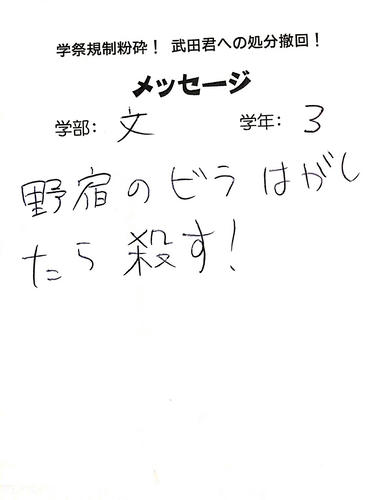 学祭規制粉砕! 武田君への処分撤回!
メッセージ
学部: 文 学年: 3
野宿のビラはがし
たら殺す!